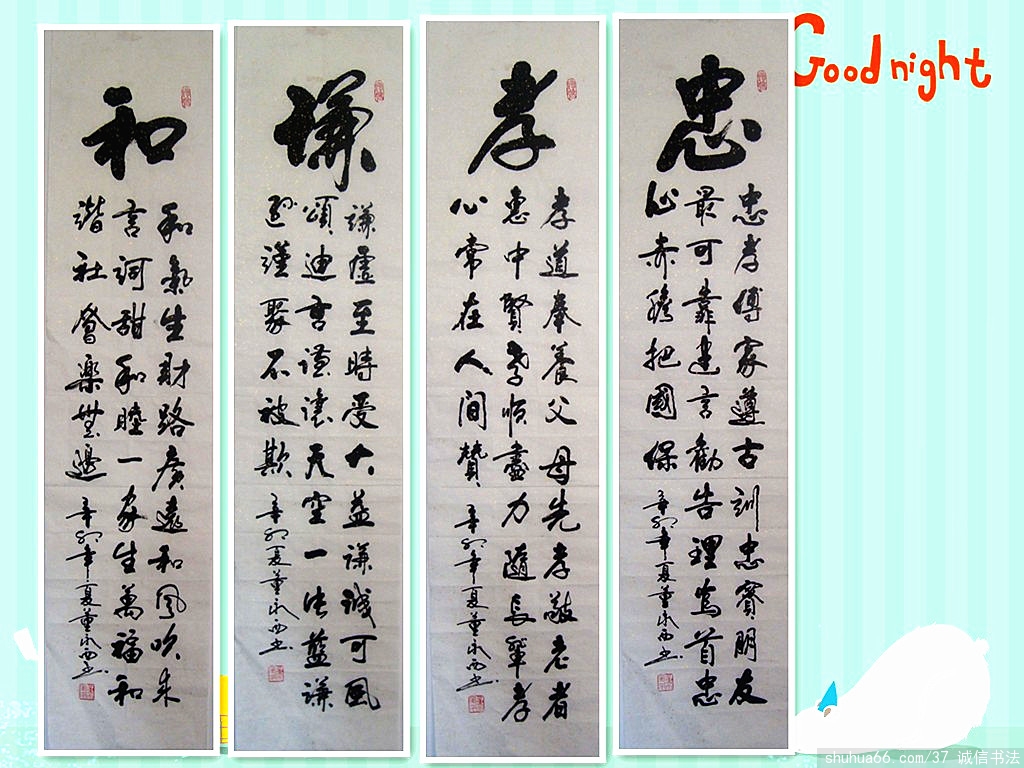 Good night
忠
忠孝傳家遵古訓忠實朋友
最可靠建言勸告理為首忠
心赤膽把國保
辛卯年夏董永西书
孝
孝道奉養父母先孝敬老者
惠中賢孝順盡力隨長輩孝
心常在人間贊
辛卯年夏董永西书
謙
謙虛至時受大益謙誠可風
頌迪吉謹讓天空一生藍謙
遜謹聚不被欺
辛卯夏董永西书
和
和氣生財路廣遠和風吹來
言詞甜和睦一家生萬福和
諧社會樂無邊
辛卯年夏董永西书
shuhua66.com/37 诚信书法